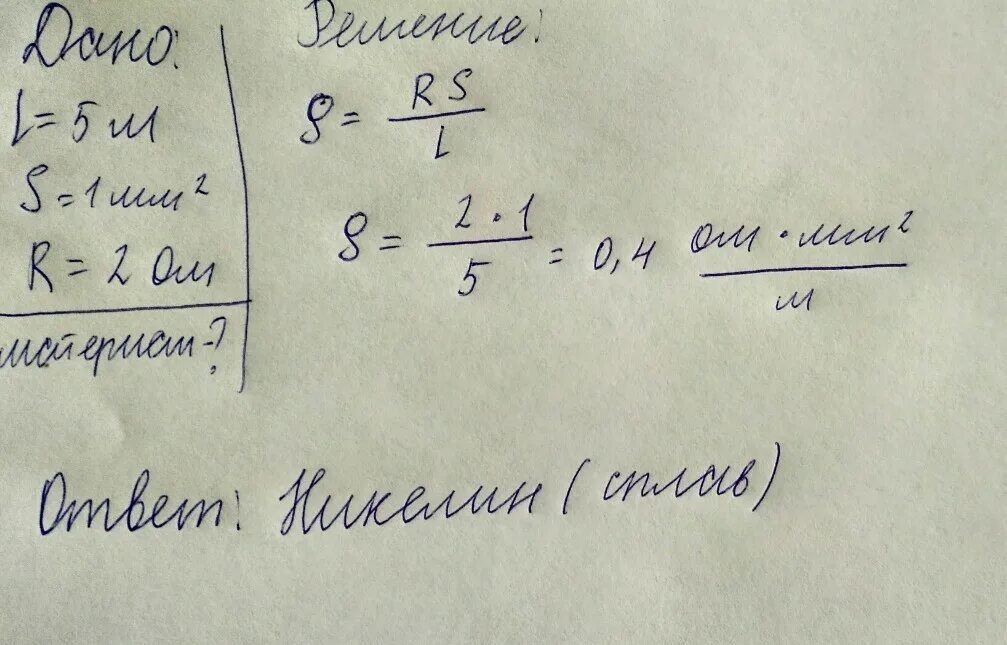 Дано:
L = 5 м
S = 1 мм²
R = 2 Ом
материал - ?
Решение:
ρ = RS / L
ρ = 2 · 1 / 5 = 0,4 ом · мм² / м
Ответ: Никелин (сплав)